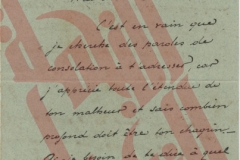 C'est en vain que
je cherche des paroles de
consolation à t'adresser car
j'apprécie toute l'étendue de
ton malheur et sais combien
profond doit être ton chagrin.
besoin de te dire à quel